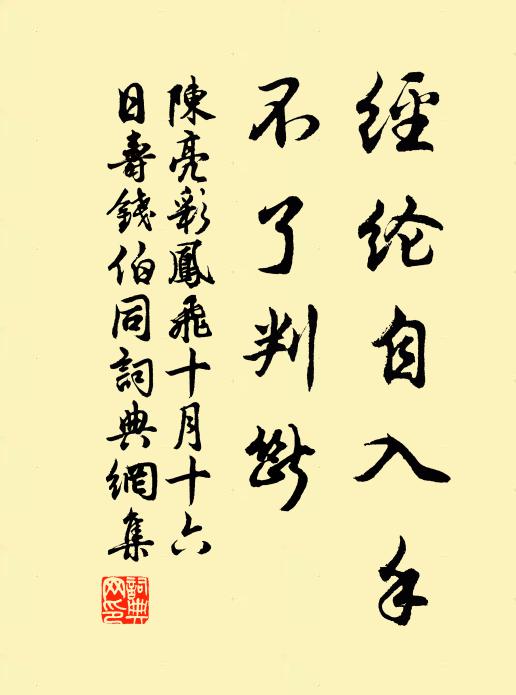 經纶自入手
不了判斷
陳亮彩鳳飛十月十六
日壽錢伯同詞典網集
詞典網印